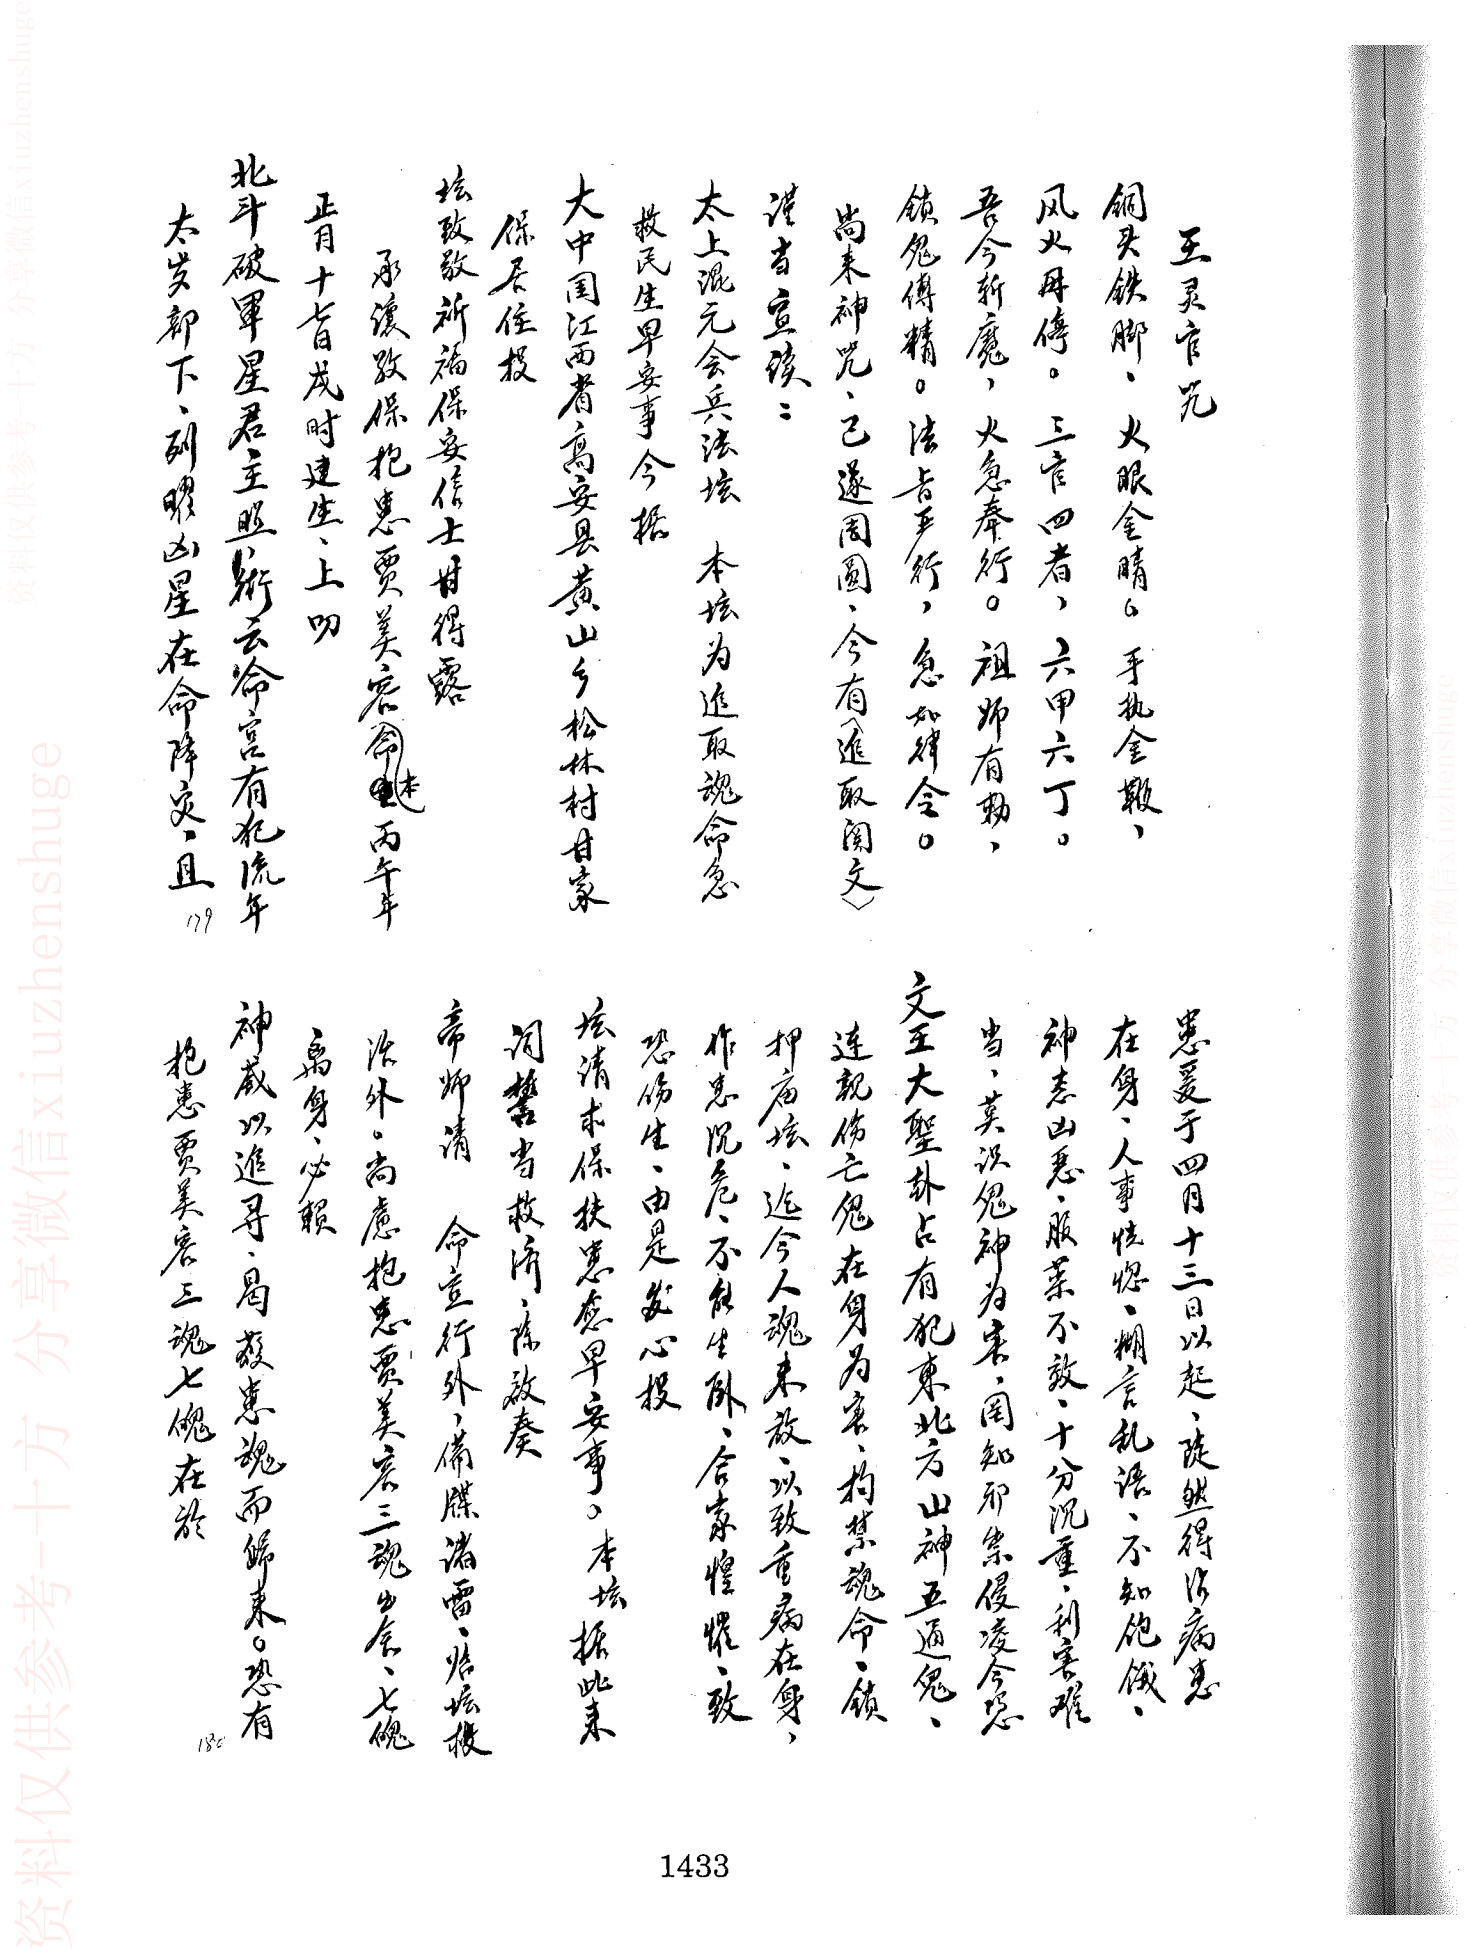 王灵官咒
铜头铁脚、火眼金睛。手执金鞭，
风火毋停。三官四者，六甲六丁。
吾今斩魔，火急奉行。祖师有勅，
锁鬼缚精。法旨平行，急如律令。
尚来神咒、已遂周圆、今有〈追取阅文〉
谨当宣读：
太上混元会兵法坛 本坛为追取魂命急
救民生早安事今据
大中国江西省高安县黄山乡松林村甘家
保居住投
坛致敬祈福保安信士甘得露
承让致保抱患贾美容命本丙午年
正月十七日戌时建生、上叨
北斗破軍星君主照，術云命宫有犯流年
太岁部下、列曜凶星在命降灾，且
179
患爰于四月十三日以起、陡然得沾病患
在身、人事恍惚、糊言乱语、不知饱饿、
神志凶恶、服药不效、十分沉重、利害难
当、莫识鬼神为害，罔知邪祟侵凌今恐
文王大聖卦占有犯東北方山神五道鬼、
连親伤亡鬼在身为害、拘禁魂命、锁
押庙坛、迄今人魂未放、以致重病在身，
作患沉危、不能生卧、合家惶惶、致
恐伤生、由是发心投
坛请求保扶患愈早安事。本坛据此来
词誓当救济、除啟奏
帝师请 命宣行外，備牒诸雷、焰坛投
治外。尚慮抱患贾美容三魂出舍、七魄
离身、必賴
神威以追寻、曷教患魂而歸来。恐有
抱患贾美容三魂七魄在於
180
1433
资料仅供参考-十方 分享微信xiuzhenshuge